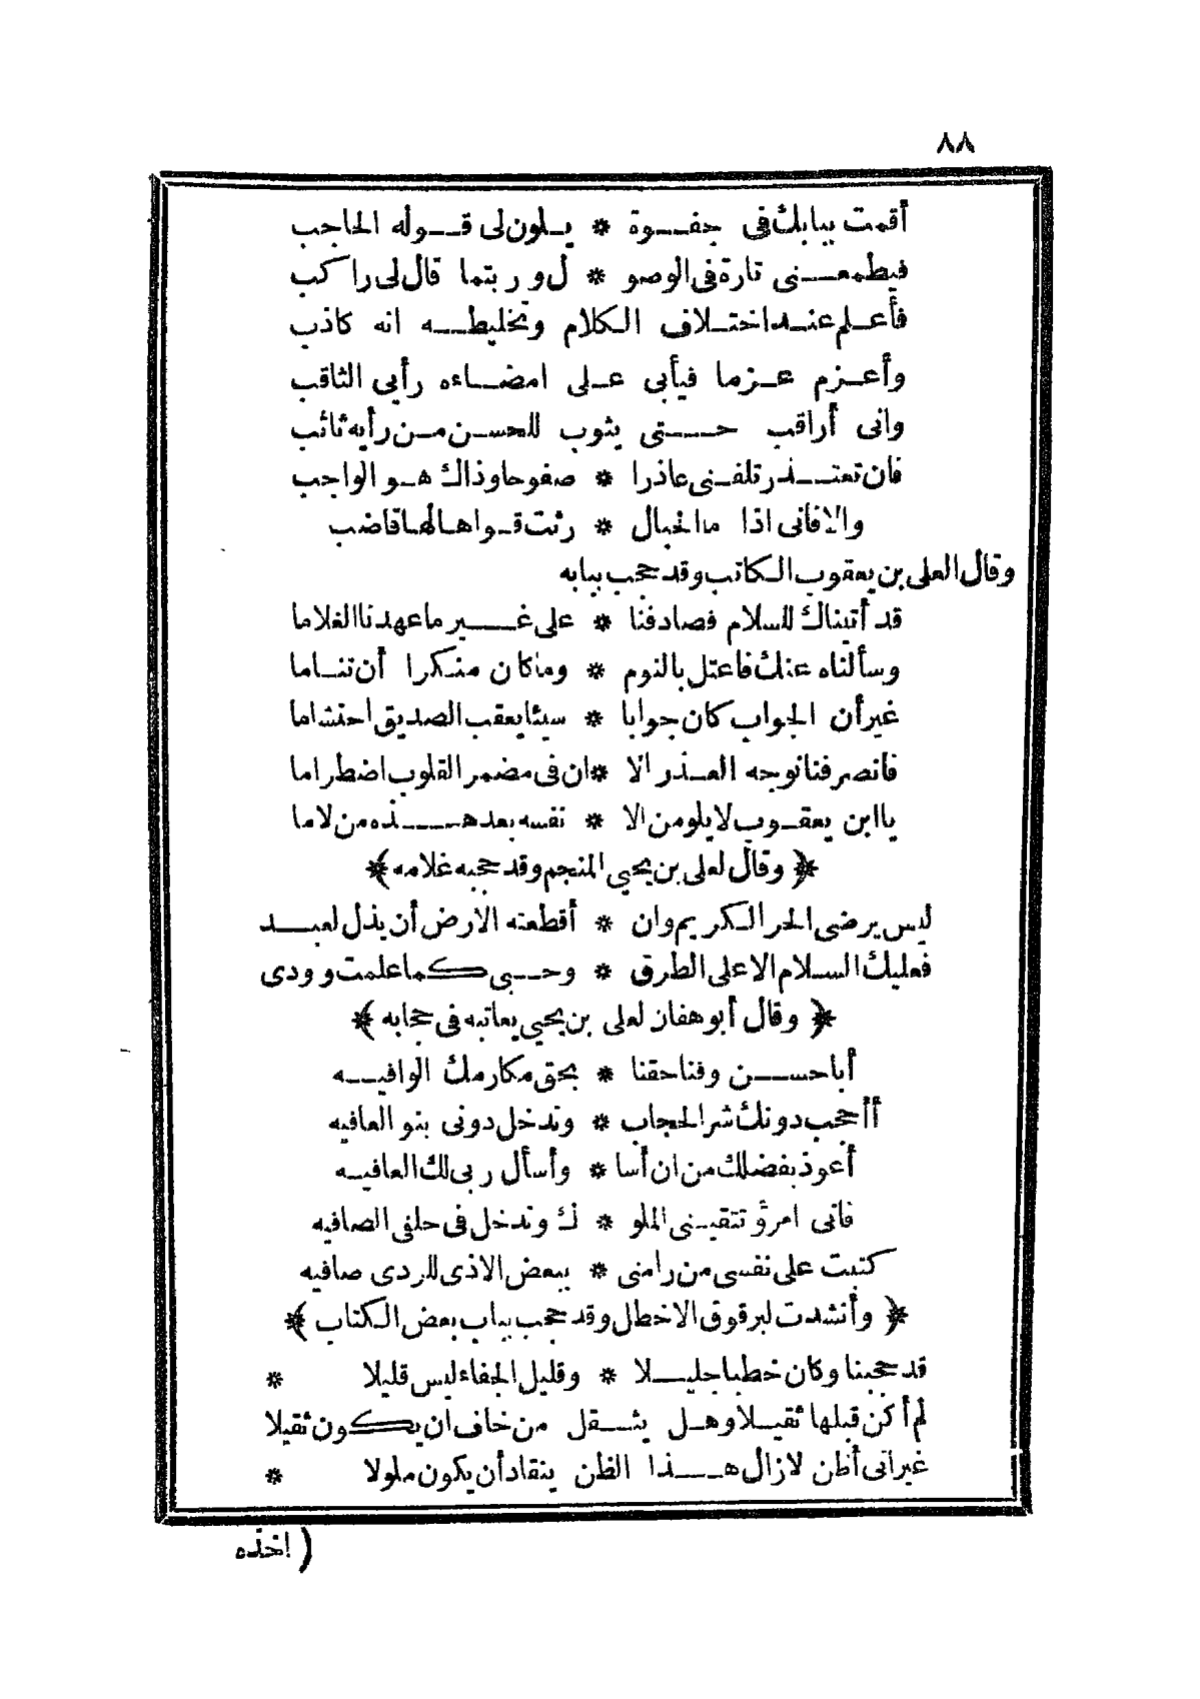 ٨٨
أقمت ببابك فى جفوة * يلون لى قوله الحاجب
فيطمعنى تارة فى الوصو * ل وربتما قال لى راكب
فأعلم عند اختلاف الكلام وتخليطه انه كاذب
وأعزم عزما فيأبى على امضاءه رأيى الثاقب
وانى أراقب حتى يثوب للحسن من رأيه ثائب
فان تعتذر تلفنى عاذرا * صفوحا وذاك هو الواجب
والا فانى اذا ما الحبال * رثت قواها لها قاضب
وقال العلى بن يعقوب الكاتب وقد حجب ببابه
قد أتيناك للسلام فصادفنا * على غير ما عهدنا الغلاما
وسألناه عنك فاعتل بالنوم * وما كان منكرا أن تناما
غير أن الجواب كان جوابا * سيئا يعقب الصديق احتشاما
فانصرفنا نوجه العذر الا * ان فى مضمر القلوب اضطراما
يا ابن يعقوب لا يلومن الا * نفسه بعد هذه من لاما
﴿ وقال لعلى بن يحيى المنجم وقد حجبه غلامه ﴾
ليس يرضى الحر الكريم وان * أقطعته الارض أن يذل لعبد
فعليك السلام الا على الطرق * وحبى كما علمت وودى
﴿ وقال أبو هفان لعلى بن يحيى يعاتبه فى حجابه ﴾
أبا حسن وفنا حقنا * بحق مكارمك الوافيه
أأحجب دونك شر الحجاب * وتدخل دونى بنو العافيه
أعوذ بفضلك من ان أسا * وأسأل ربى لك العافيه
فانى امرؤ تتقينى الملو * ك وتدخل فى حلفى الصافيه
كتبت على نفسى من رامنى * ببعض الاذى للردى صافيه
﴿ وأنشدت لبرقوق الاخطل وقد حجب بباب بعض الكتاب ﴾
قد حجبنا وكان خطبا جليلا * وقليل الجفاء ليس قليلا *
لم أكن قبلها ثقيلا وهل يثقل من خاف ان يكون ثقيلا
غير انى أظن لا زال هذا الظن ينقاد أن يكون ملولا *
( اخذه